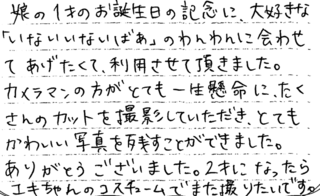 娘の1才のお誕生日の記念に、大好きな
「いないいないばあ」のわんわんに会わせ
てあげたくて、利用させて頂きました。
カメラマンの方がとても一生懸命に、たく
さんのカットを撮影していただき、とても
かわいい写真を残すことができました。
ありがとうございました。2才になったら
ユキちゃんのコスチュームでまた撮りたいです。